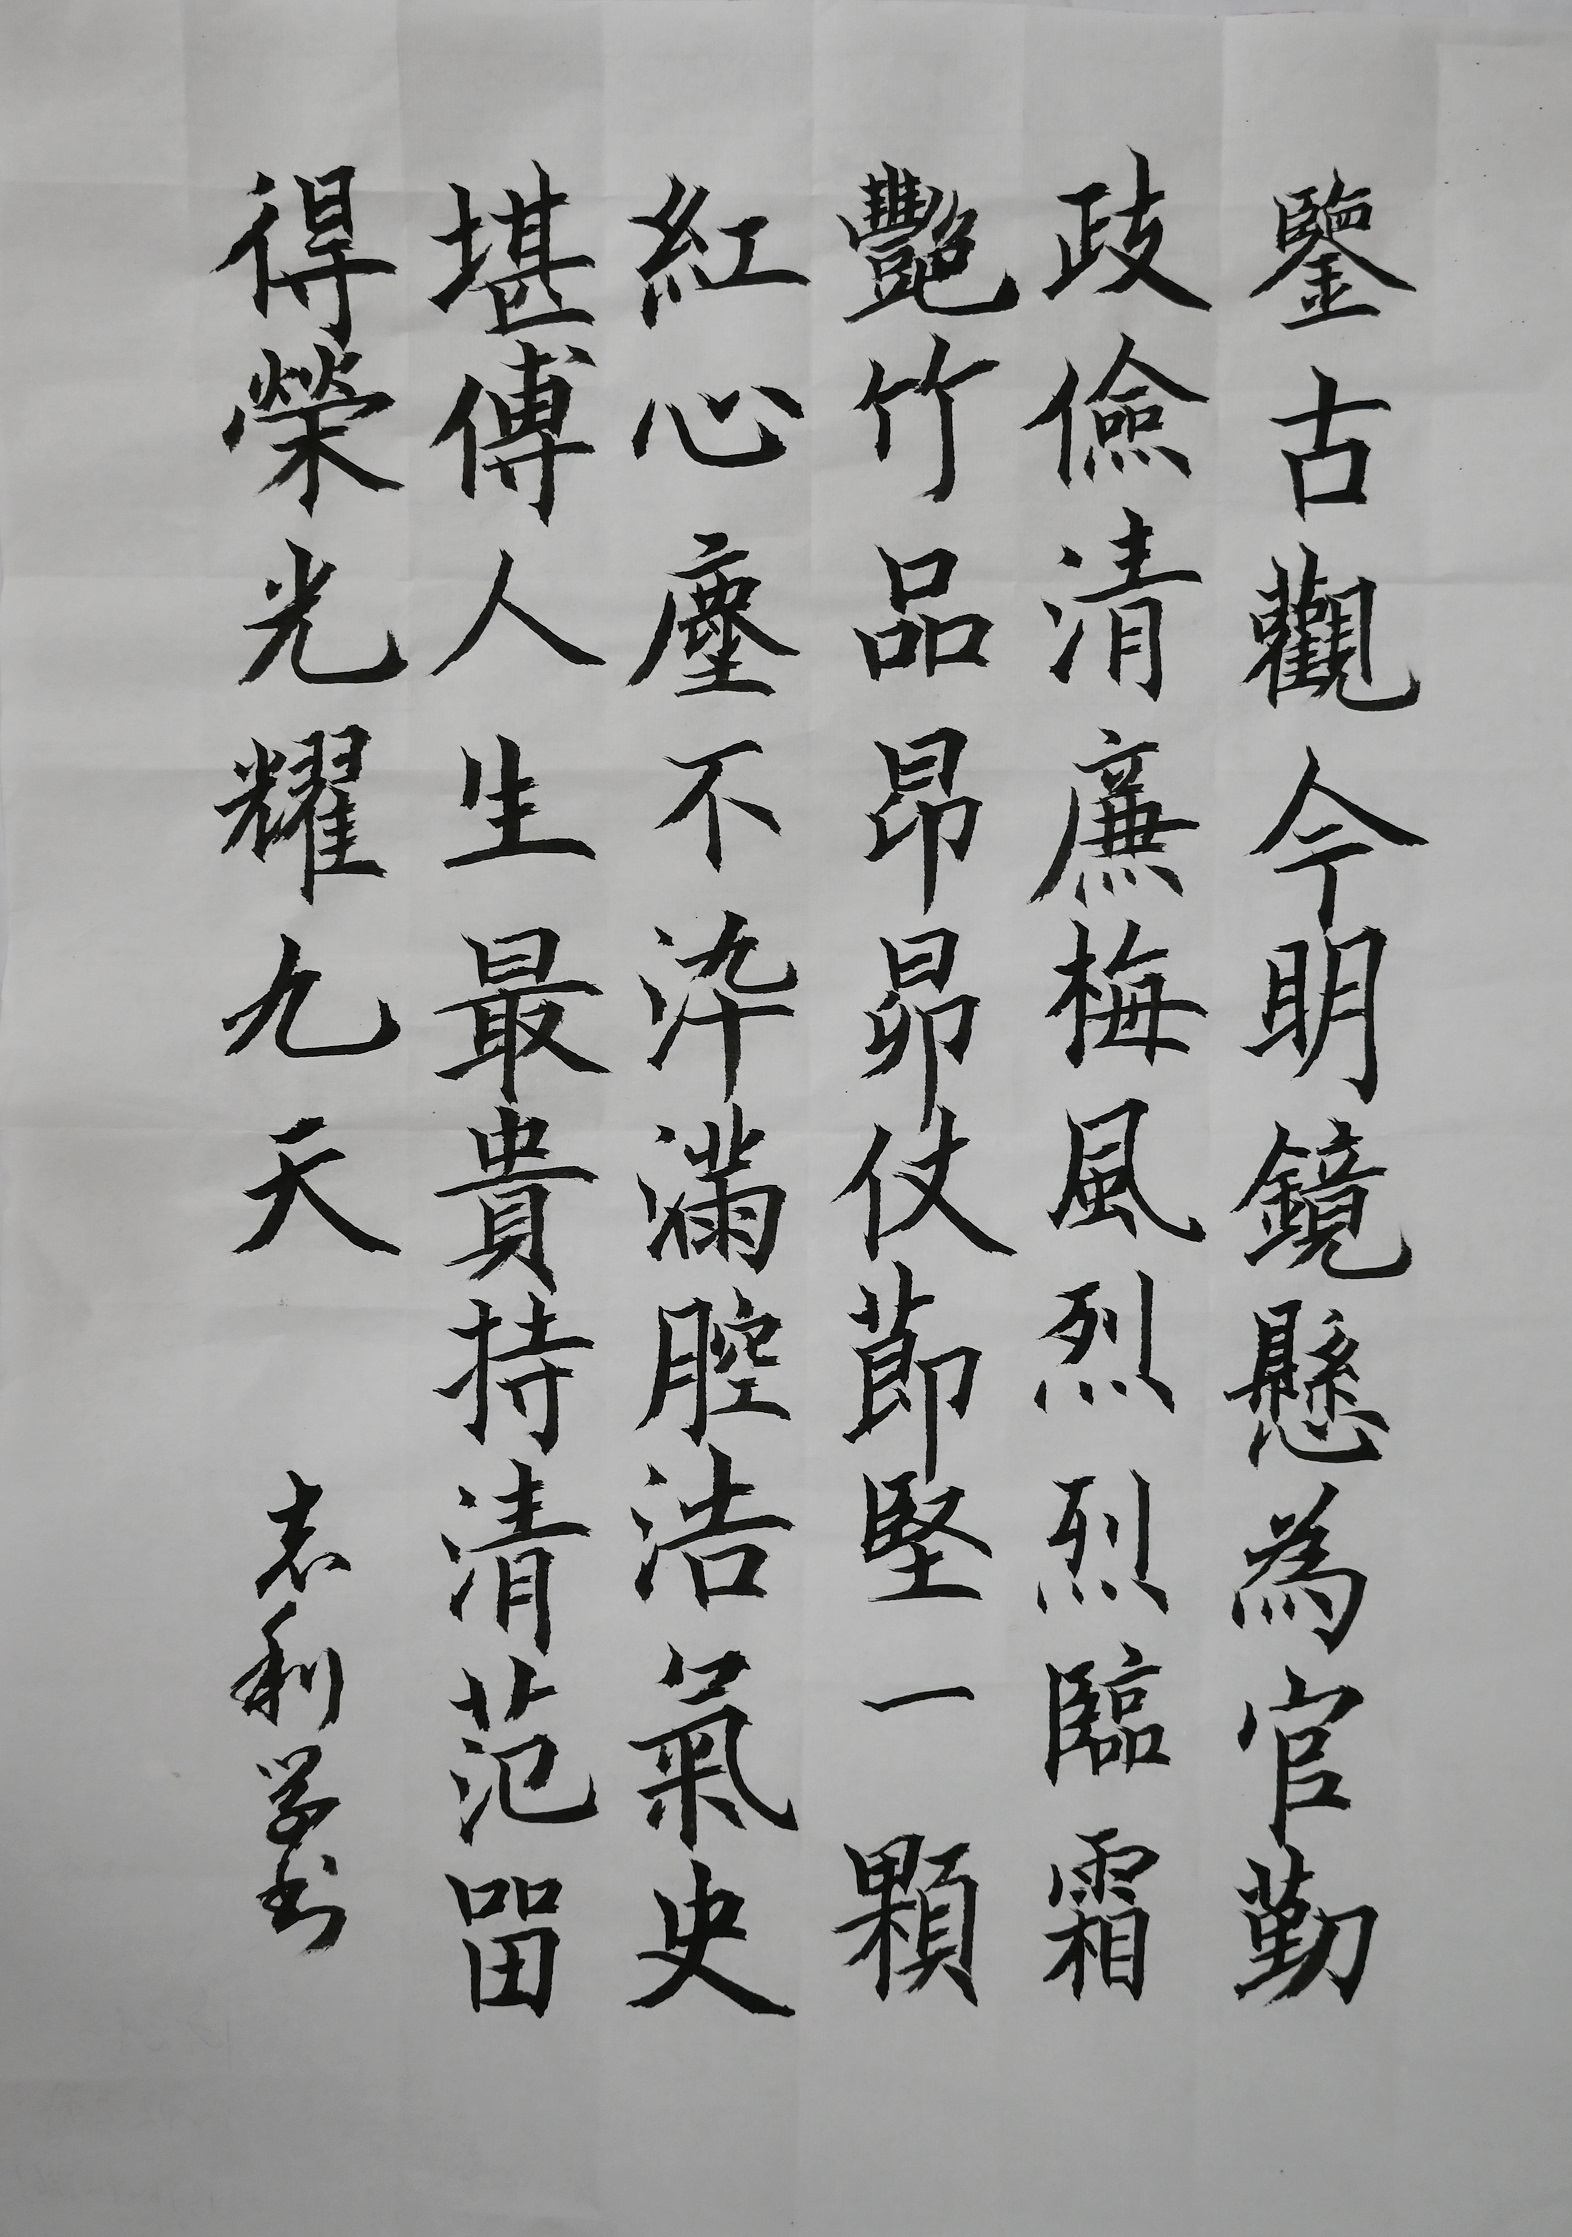 鑒古觀今明鏡懸為官勤
政儉清廉梅風烈烈臨霜
艷竹品昂昂仗節堅一顆
紅心塵不染滿腔浩氣史
堪傳人生最貴持清范留
得榮光耀九天
志利學書